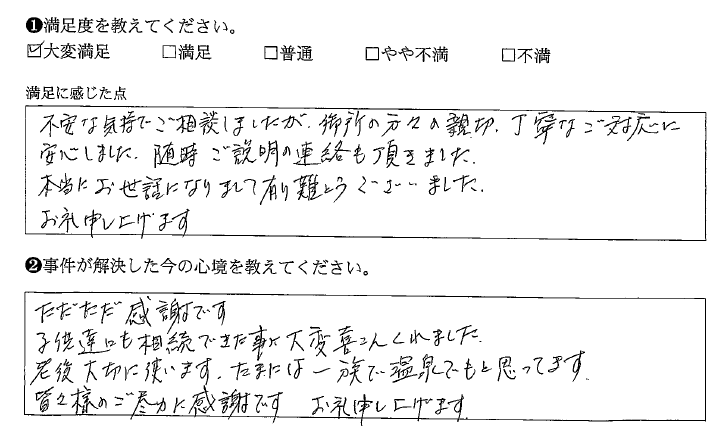 ❶満足度を教えてください。
☑大変満足 □満足 □普通 □やや不満 □不満
満足に感じた点
不安な気持でご相談しましたが、御所の方々の親切、丁寧なご対応に
安心しました。随時ご説明の連絡も頂きました。
本当にお世話になりまして有り難とうございました。
お礼申し上げます
❷事件が解決した今の心境を教えてください。
ただただ感謝です
子供達にも相続できた事が大変喜こんくれました。
老後大切に使います。たまには一族で温泉でもと思ってます。
皆々様のご尽力に感謝です お礼申し上げます。